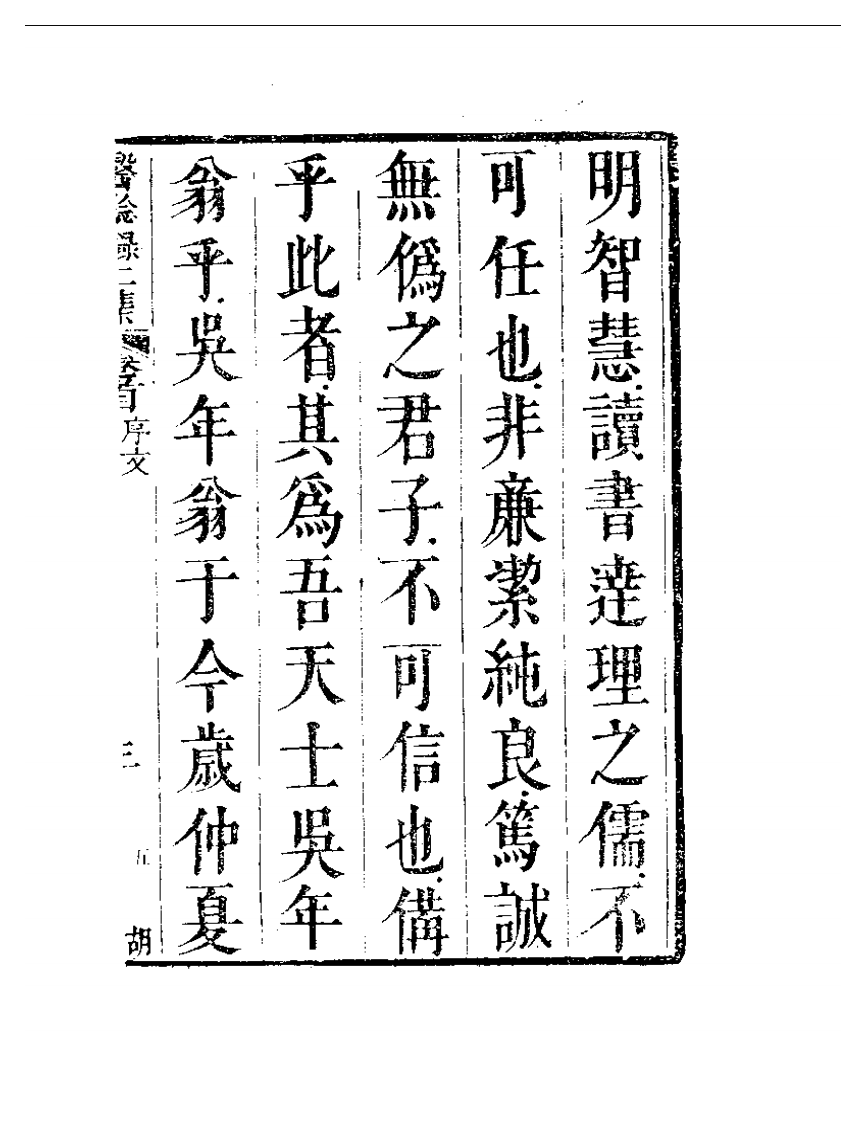 明智慧。讀書達理之儒。不
可任也。非亷潔純良。篤誠
無偽之君子。不可信也。備
乎此者。其為吾天士吳年
翁乎。吳年翁于今歲仲夏
醫驗錄二集 卷首 序文 三 五 胡